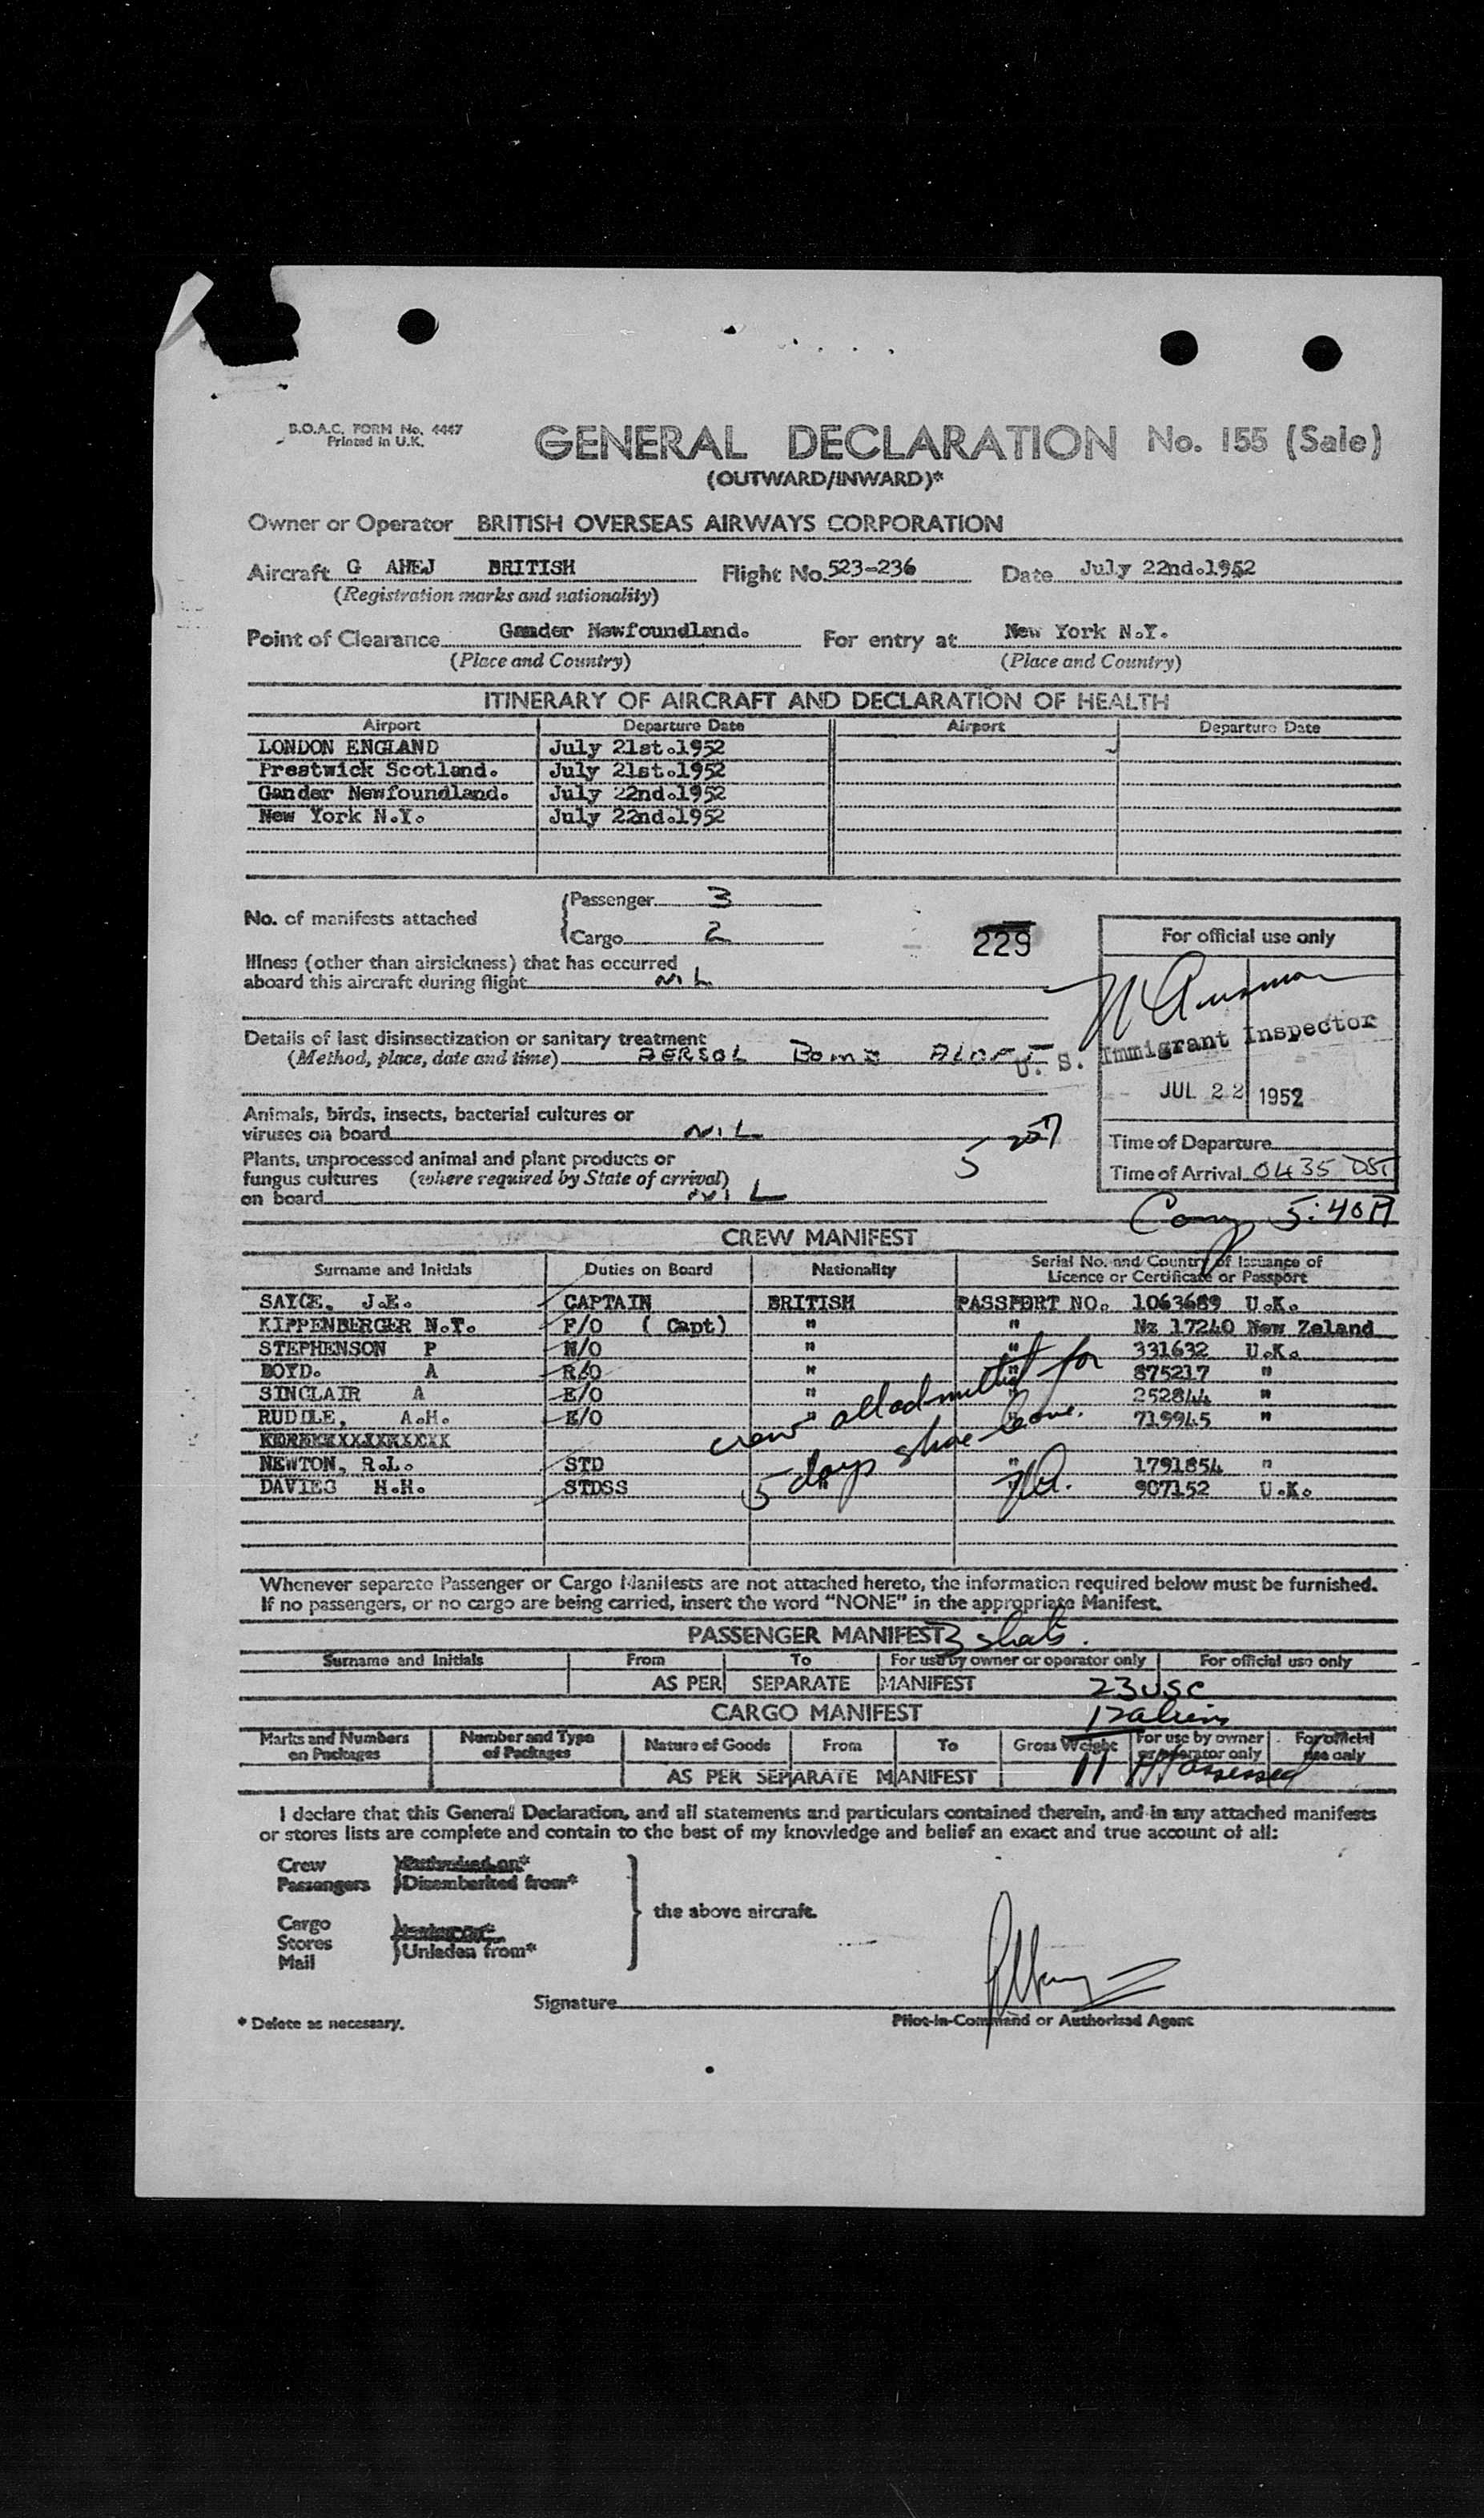 B.O.A.C. FORM No. 4447
Printed in U.K.
GENERAL DECLARATION No. 155 (Sale)
(OUTWARD/INWARD)*
Owner or Operator BRITISH OVERSEAS AIRWAYS CORPORATION
Aircraft G AHEJ BRITISH Flight No. 523-236 Date July 22nd.1952
(Registration marks and nationality)
Point of Clearance Gander Newfoundland. For entry at New York N.Y.
(Place and Country) (Place and Country)
ITINERARY OF AIRCRAFT AND DECLARATION OF HEALTH
Airport Departure Date Airport Departure Date
LONDON ENGLAND July 21st.1952
Prestwick Scotland. July 21st.1952
Gander Newfoundland. July 22nd.1952
New York N.Y. July 22nd.1952
No. of manifests attached
Passenger 3
Cargo 2
229
For official use only
Illness (other than airsickness) that has occurred
aboard this aircraft during flight NIL
U. S. Immigrant Inspector
JUL 22 1952
Details of last disinsectization or sanitary treatment
(Method, place, date and time) AERSOL BOMB ALOFT
Animals, birds, insects, bacterial cultures or
viruses on board NIL
Time of Departure
Plants, unprocessed animal and plant products or
fungus cultures (where required by State of arrival)
on board NIL
5 257
Time of Arrival 0435 DST
5:40A
CREW MANIFEST
Surname and Initials Duties on Board Nationality Serial No. and Country of Issuance of
Licence or Certificate or Passport
SAYCE, J.E. CAPTAIN BRITISH PASSPORT NO. 1063689 U.K.
KIPPENBERGER N.T. F/O (Capt) " " Nz 17240 New Zeland
STEPHENSON P N/O " " 331632 U.K.
BOYD. A R/O " " 875217 "
SINCLAIR A E/O " 252844 "
RUDDLE, A.H. E/O " 719945 "
NEWTON, R.L. STD " 1791854 "
DAVIES H.H. STDSS " 907152 U.K.
crew all admitted for
5 days shore leave.
Whenever separate Passenger or Cargo Manifests are not attached hereto, the information required below must be furnished.
If no passengers, or no cargo are being carried, insert the word "NONE" in the appropriate Manifest.
PASSENGER MANIFEST 3 shts.
Surname and Initials From To For use by owner or operator only For official use only
AS PER SEPARATE MANIFEST
23 USC
12 aliens
CARGO MANIFEST
Marks and Numbers on Packages Number and Type of Packages Nature of Goods From To Gross Weight For use by owner or operator only For official use only
AS PER SEPARATE MANIFEST
11 assessed
I declare that this General Declaration, and all statements and particulars contained therein, and in any attached manifests
or stores lists are complete and contain to the best of my knowledge and belief an exact and true account of all:
Crew Embarked on*
Passengers Disembarked from*
the above aircraft.
Cargo
Stores
Mail
Unladen from*
Signature
* Delete as necessary.
Pilot-in-Command or Authorised Agent